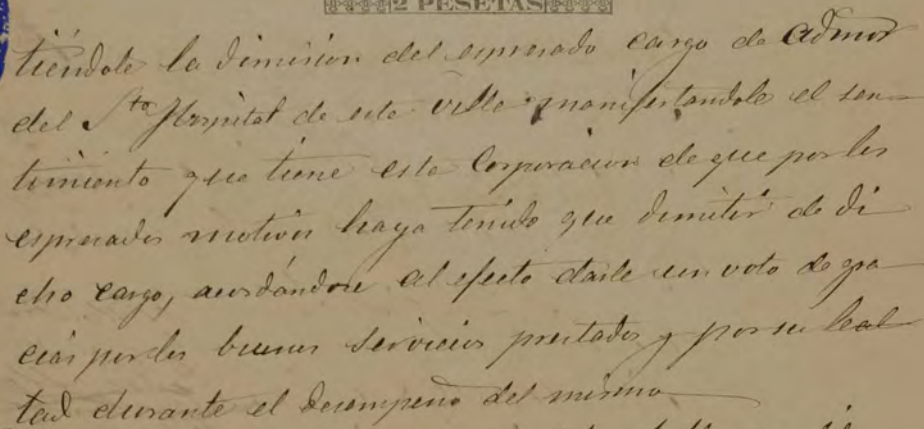 2 PESETAS
tiéndole la dimision del espresado cargo de Admor
del Sto Hospital de esta villa manifestandole el sen-
timiento que tiene esta Corporacion de que por los
espresados motivos haya tenido que dimitir de di
cho cargo, acordándose al efecto darle un voto de gra-
cias por los buenos servicios prestados y por su leal
tad durante el desempeño del mismo